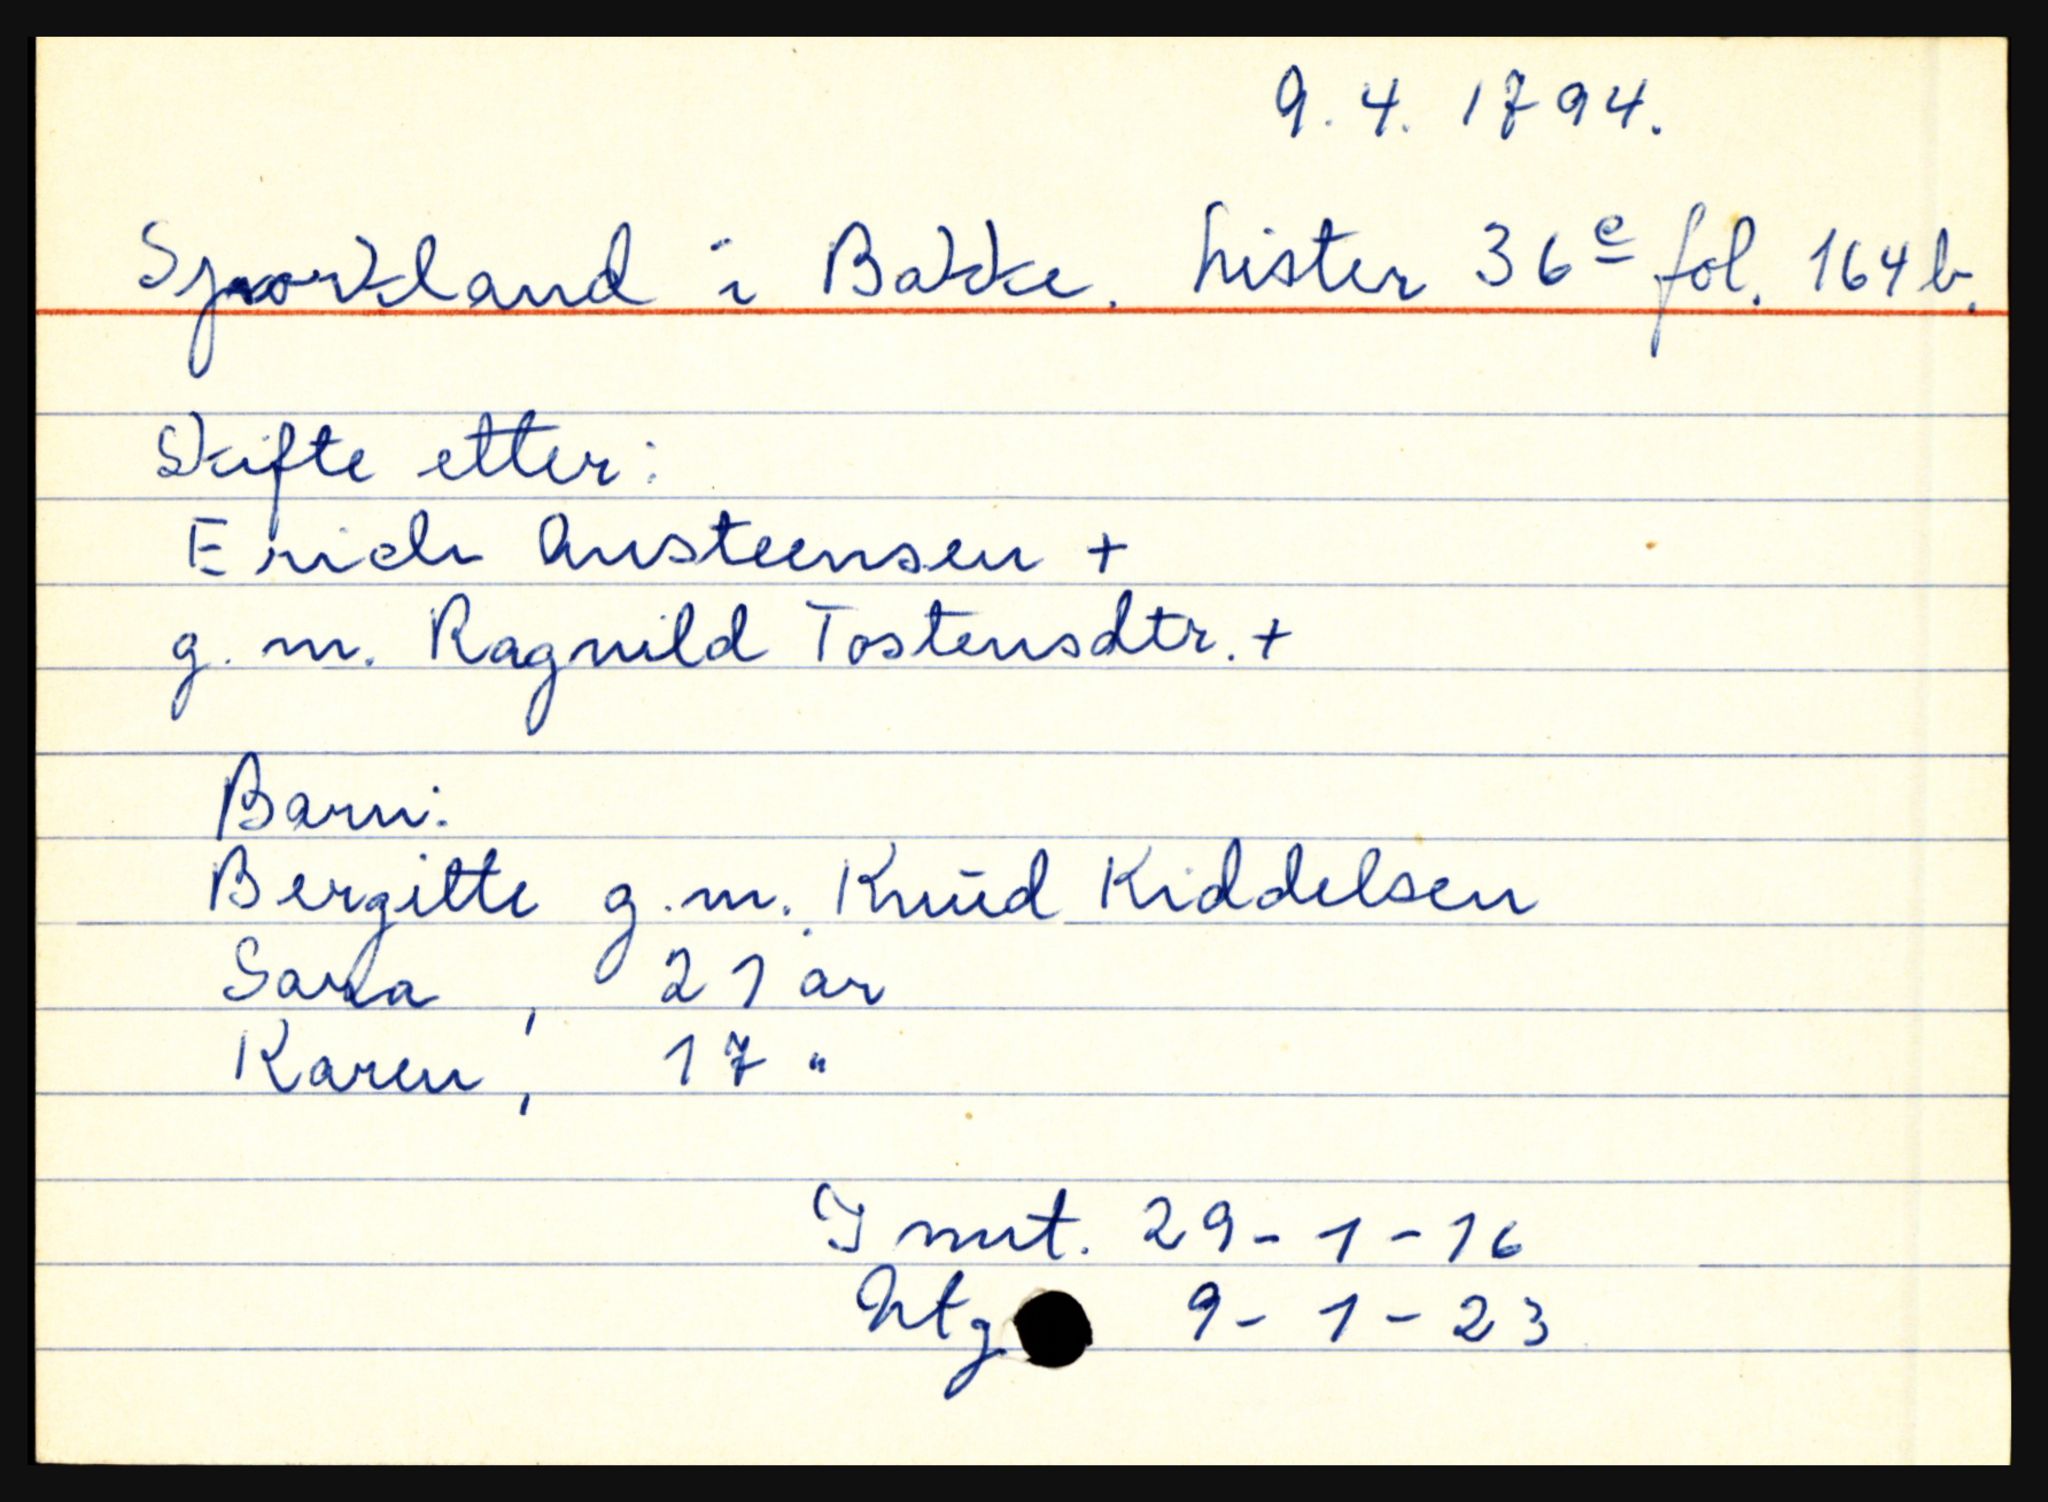 9.4.1794.
Sporkland i Bakke. Lister 36e fol. 164b.
Skifte etter:
Erich Austeensen +
g.m. Ragnild Tostensdtr. +
Barn:
Bergitte g.m. Knud Kiddelsen
Sara, 21 år
Karen, 17 "
I nut. 29-1-16
Utg 9-1-23